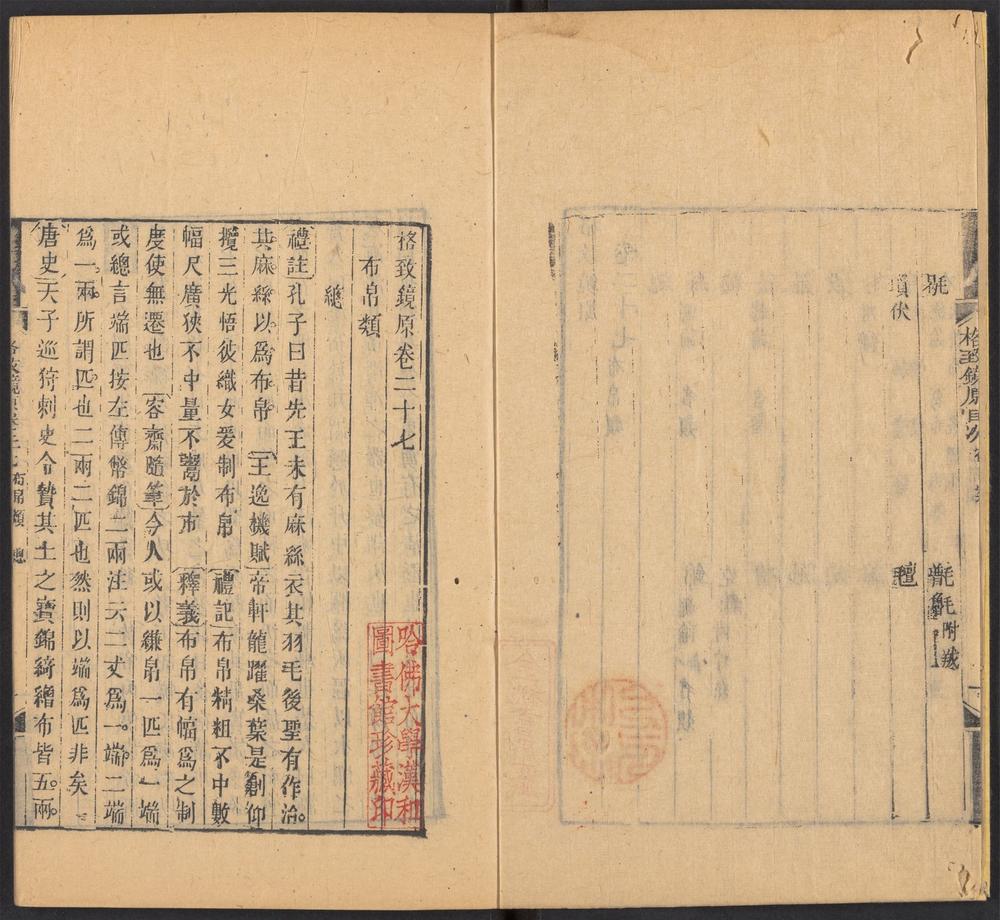 格致鏡原目次
氈
格致鏡原卷二十七
布帛類
總
〔禮註〕孔子曰昔先王未有麻絲衣其羽毛後聖有作治。
其麻絲以爲布帛。〔王逸機賦〕帝軒龍躍桑葉是創仰
攬三光悟彼織女爰制布帛〔禮記〕布帛精粗不中數
幅尺廣狹不中量不鬻於市〔釋義〕布帛有幅爲之制
度使無遷也〔容齋隨筆〕今人或以縑帛一匹爲一端
或總言端匹按左傳幣錦二兩注云二丈爲一端。二端
爲一兩。所謂匹也二兩二匹也然則以端爲匹非矣
〔唐史〕天子巡狩刺史令贊其土之寶錦綺繒布皆五兩。
格致鏡原卷二十七 布帛類 總
哈佛大學漢和
圖書館珍藏印